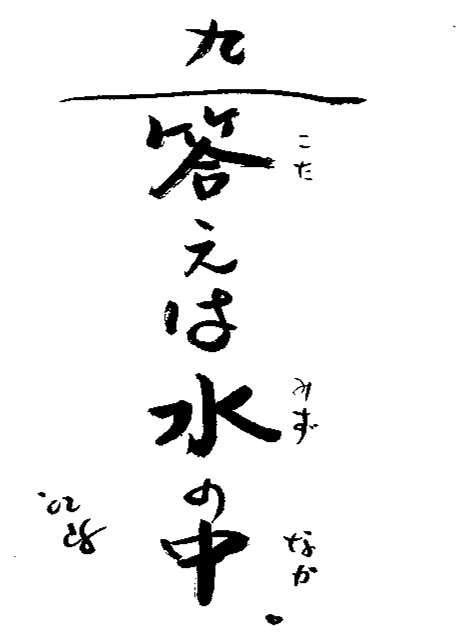 九
答えは水の中
こた
みず
なか